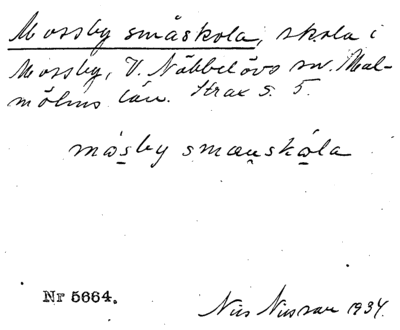 Mossby småskola, skola i
Mossby, V. Nöbbelövs sn. Mal-
möhus län. Strax S. 5.
mosby smaunskola
Nr 5664.
Nils Nilsson 1934.